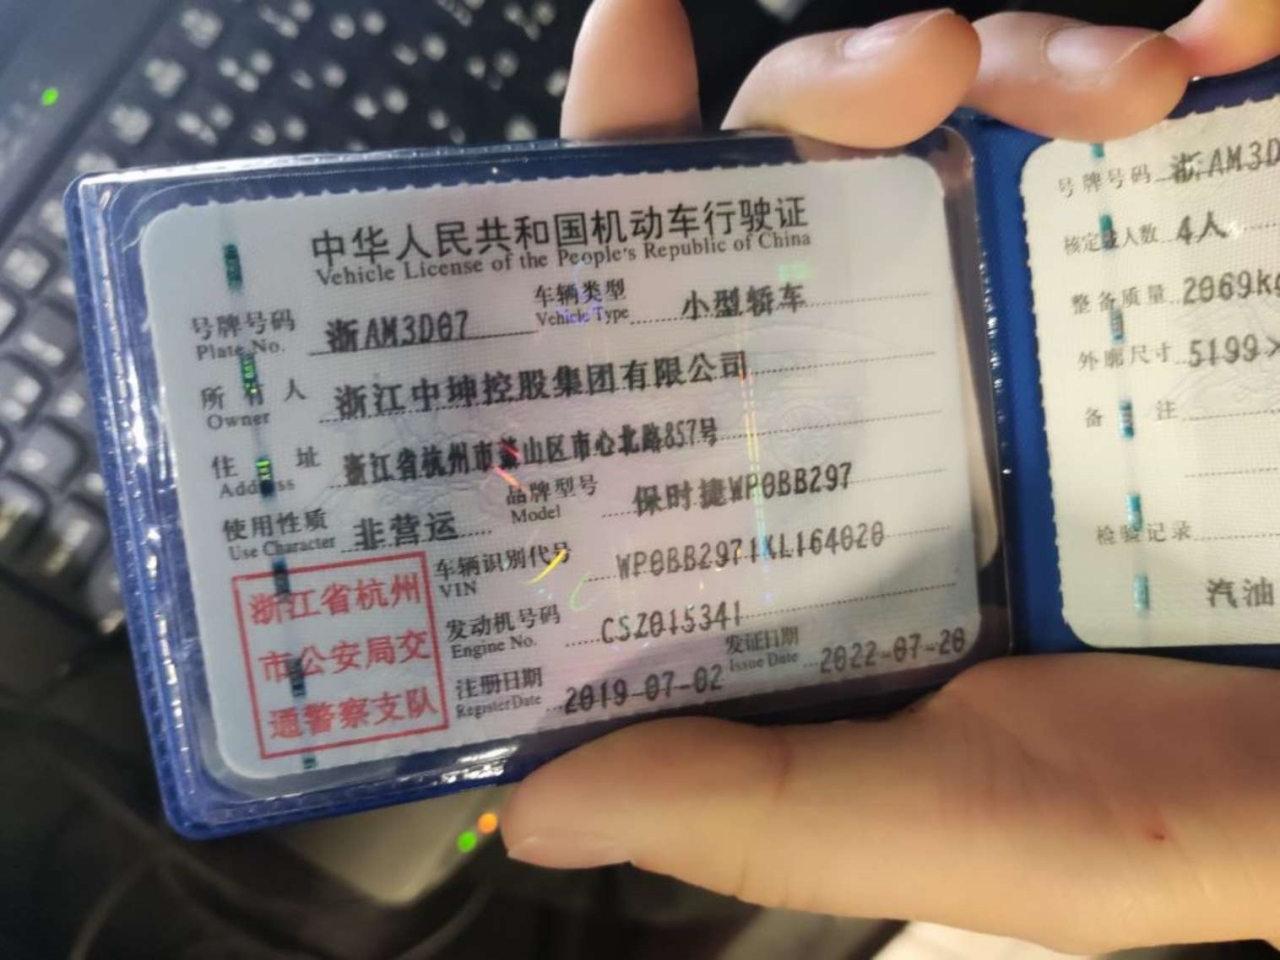 中华人民共和国机动车行驶证
Vehicle License of the People's Republic of China
号牌号码 浙AM3D07 车辆类型 小型轿车
Plate No. Vehicle Type
所有人 浙江中坤控股集团有限公司
Owner
住址 浙江省杭州市萧山区市心北路857号
Address
使用性质 非营运 品牌型号 保时捷WP0BB297
Use Character Model
车辆识别代号 WP0BB2971KL164020
VIN
发动机号码 CSZ015341
Engine No.
注册日期 2019-07-02 发证日期 2022-07-20
Register Date Issue Date
浙江省杭州
市公安局交
通警察支队
号牌号码 浙AM3D
核定载人数 4人
整备质量 2069kg
外廓尺寸 5199×
备注
检验记录
汽油